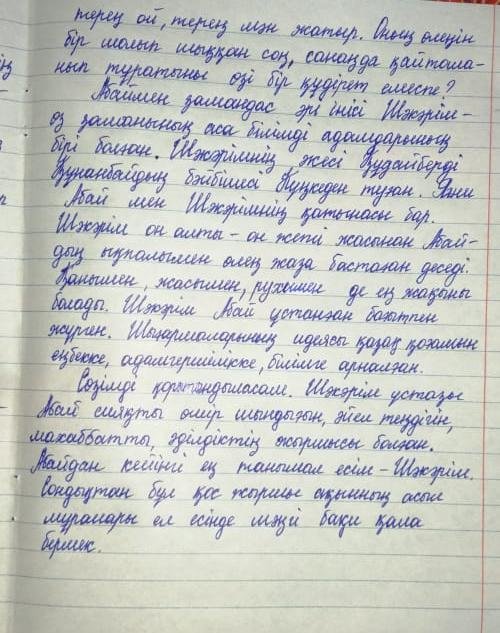 терең ой, терең мән жатыр. Оның өлеңін
бір малып шыққан соң, санаңда қайтала-
нып тұратыны өзі бір құдірет емеспе?
Абаймен замандас әрі інісі Шәкәрім -
өз заманының аса білімді адамдарының
бірі болған. Шәкәрімнің әкесі Құдайберді
Құнанбайдың бәйбішесі Күңкеден туған. Яғни
Абай мен Шәкәрімнің қатынасы бар.
Шәкәрім он алты - он жеті жасынан Абай-
дың ықпалымен өлең жаза бастаған деседі.
Қанымен, жасымен, рухымен де ең жақыны
болады. Шәкәрім Абай ұстанған бағытпен
жүрген. Шығармаларының идеясы қазақ қоғамын
еңбекке, адамгершілікке, білімге арналған.
Сөзімді қорытындыласам. Шәкәрім ұстазы
Абай сияқты өмір шындығын, әйел теңдігін,
махаббатты, әділдіктің жыршысы болған.
Абайдан кейінгі ең танымал есім - Шәкәрім.
Сондықтан бұл қос жыршы ақынның асыл
мұралары ел есінде мәңгі бақи қала
бермек.